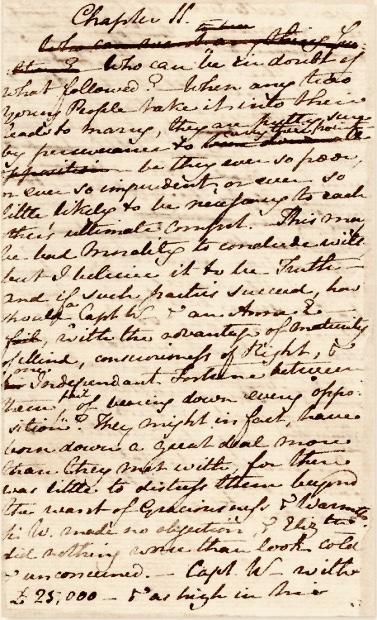 Chapter 11.
Who can be in doubt of
what followed? When any two
Young People take it into their
heads to marry, they are pretty sure
by perseverance to carry their point
be they ever so poor,
or ever so imprudent, or ever so
little likely to be necessary to each
other's ultimate comfort. This may
be bad Morality to conclude with,
but I believe it to be Truth
and if such parties succeed, how
should a Capt W— & an Anne E—
fail, with the advantage of maturity
of Mind, consciousness of Right, &
one Independant Fortune between
them, of bearing down every oppo-
sition? They might in fact, have
born down a great deal more
than they met with, for there
was little to distress them beyond
the want of Graciousness & Warmth.
W. made no objection, & Elizth
did nothing worse than look cold
& unconcerned. — Capt W— with
£25,000 — & as high in his